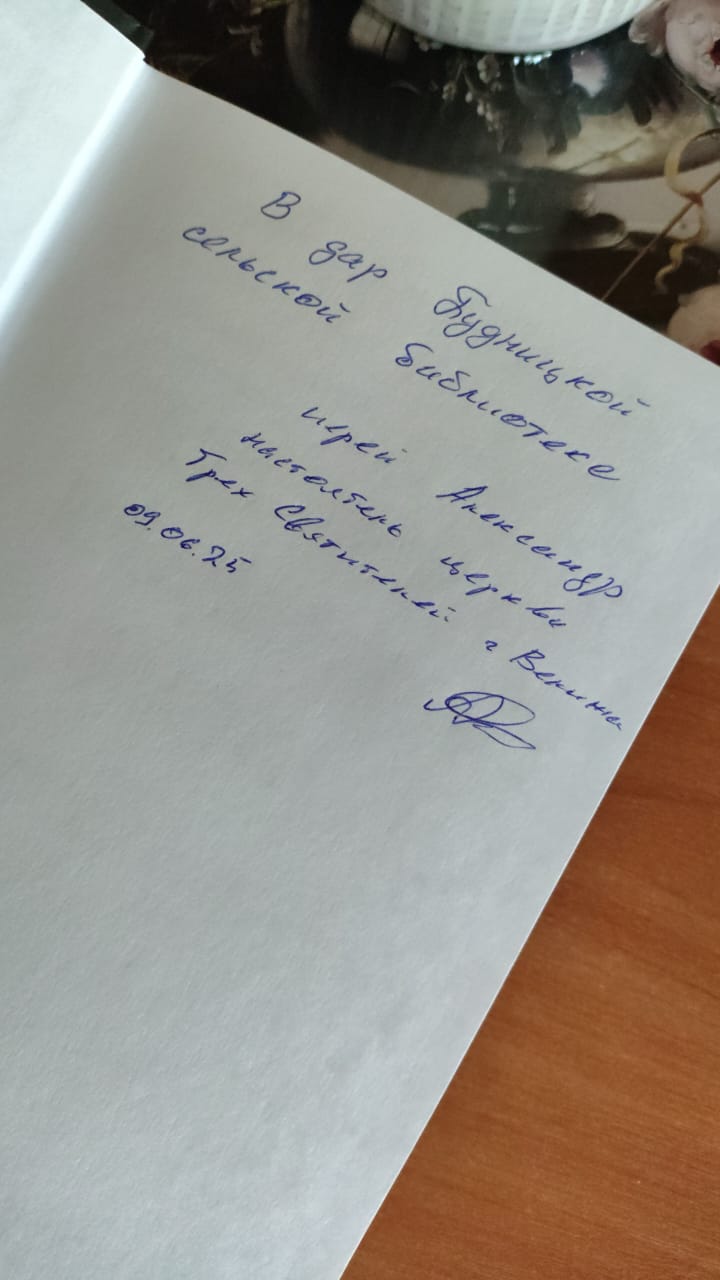 В дар Пудницкой
сельской библиотеке
иерей Александр
настоятель церкви
Трех Святителей г Велижа
09.06.25